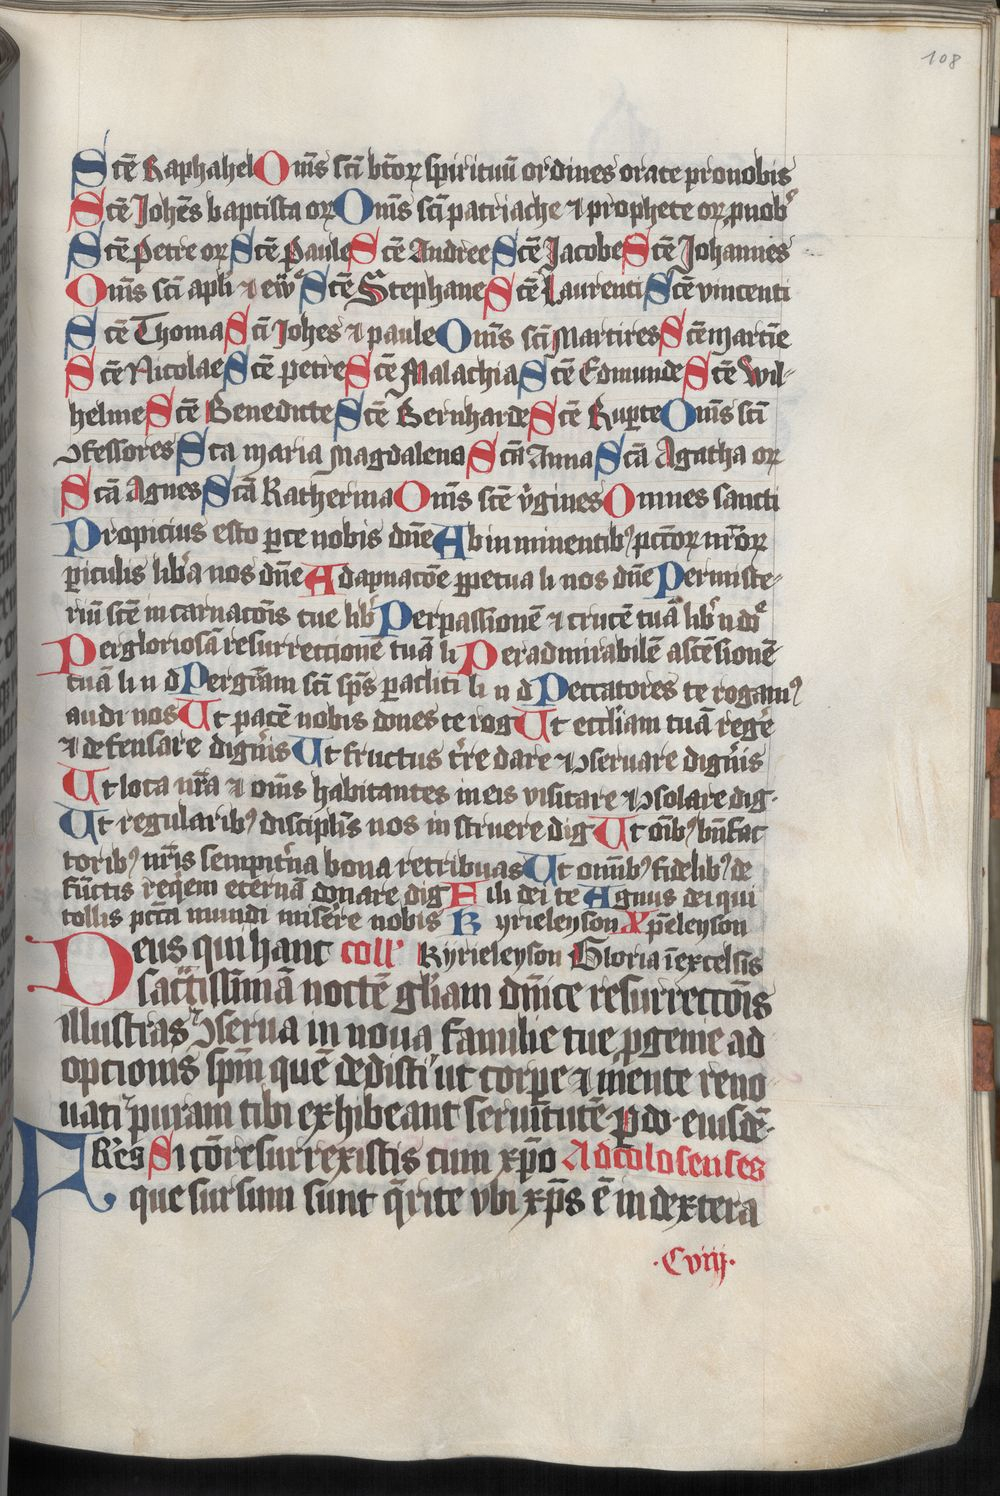 108
Sctē Raphahel Om̄s scī btōꝝ spirituū ordines orate pro nobis
Sctē Johēs baptista oꝝ Om̄s scī patriache ⁊ prophete oꝝ ꝓ nobꝰ
Sctē Petre oꝝ Sctē Paule Sctē Andree Sctē Jacobe Sctē Johannes
Om̄s scī apłi ⁊ ew̄ Sctē Stephane Sctē Laurenti Sctē vincenti
Sctē Thoma Scī Johēs ⁊ paule Om̄s scī Martires Sctē martīe
Sctē Nicolae Sctē petre Sctē Malachia Sctē Edmunde Sctē Wil-
helme Sctē Benedicte Sctē Bernharde Sctē Ruꝑte Om̄s scī
ꝯfessores Scta maria Magdalena Scā Anna Scā Agatha oꝝ
Scā Agnes Scā Katherina Om̄s sctē v̄gines Omnes sancti
Propicius esto ꝑce nobis dn̄e Ab inminentibꝰ pctōꝝ nr̄oꝝ
ꝑiculis liba nos dn̄e A dāpnacōe ꝑpetua li nos dn̄e Per miste-
riū sctē incarnacōis tue lib Per passionē ⁊ crucē tuā lib n do
Per gloriosā resurrectionē tuā li Per admirabilē ascēsionē
tuā li n d Per grām scī sp̄s ꝑacliti li n d Peccatores te rogamꝰ
audi nos Ut pacē nobis dones te rog Ut eccłiam tuā regē
⁊ defensare dignīs Ut fructus tr̄e dare ⁊ ꝯseruare dignīs
Ut loca nr̄a ⁊ om̄s habitantes in eis visitare ⁊ ꝯsolare dig.
Ut regularibꝰ disciplīs nos instruere dig Ut oībꝰ bn̄fac
toribꝰ nr̄is sempit̄na bona retribuas Ut omībꝰ fidelibꝰ de
fūctis reqem eternā donare dig Fili dei te Agnus dei qui
tollis pctā mundi misēre nobis Kyrieleyson Xp̄eleyson
Deus qui hanc coll' Kyrieleyson Gloria ī excelsis
sactissimā noctē gliam dn̄ice resurreccōis
illustras ꝯserua in noua familie tue ꝓgenie ad
opcionis sp̄m quē dedisti ut corꝑe ⁊ mente reno
uati puram tibi exhibeant seruitutē ꝑ do. eiusdē.
Fr̄es Si cōresurrexistis cum xp̄o Ad colosenses
que sursum sunt q̄rite vbi xp̄s ē in dextera
.Cviij.